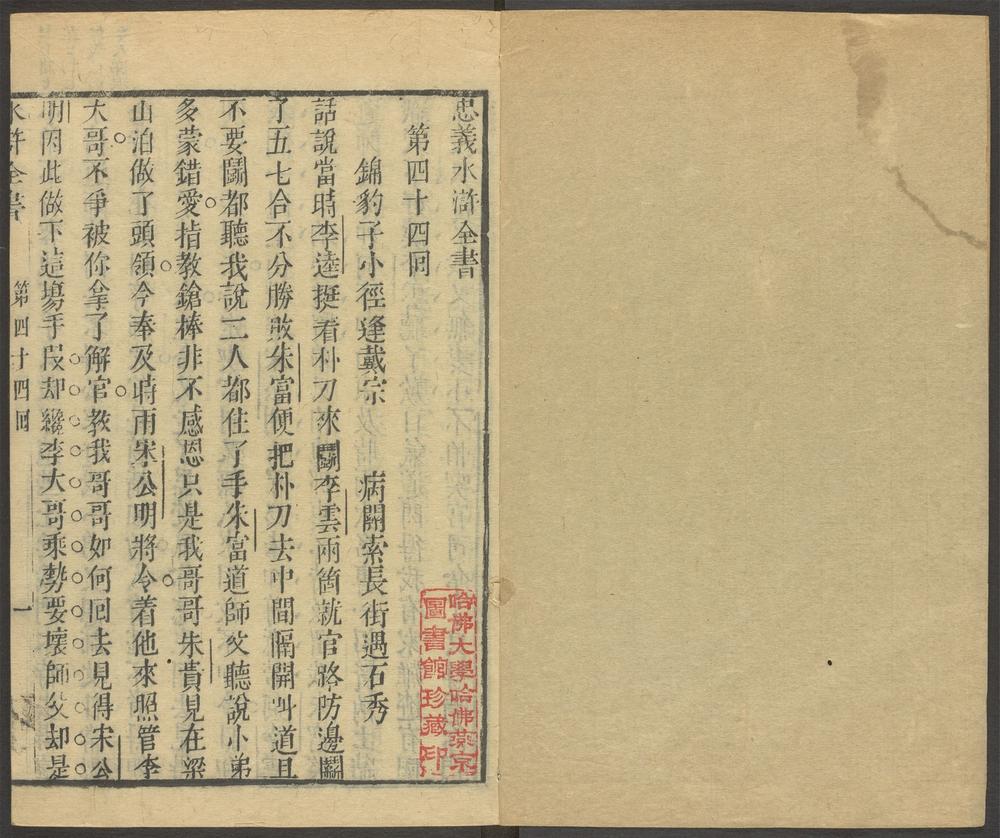 忠義水滸全書
第四十四回
錦豹子小徑逢戴宗　病關索長街遇石秀
話說當時李逵挺着朴刀來鬭李雲兩箇就官路防邊鬭
了五七合不分勝敗朱富便把朴刀去中間隔開叫道且
不要鬭都聽我說二人都住了手朱富道師父聽說小弟
多蒙錯愛指教鎗棒非不感恩只是我哥哥朱貴見在梁
山泊做了頭領今奉及時雨宋公明將令着他來照管李
大哥不爭被你拿了解官教我哥哥如何回去見得宋公
明因此做下這場手段却纔李大哥乘勢要壞師父却是
水滸全書　第四十四回　一
哈佛大學哈佛燕京
圖書館珍藏印